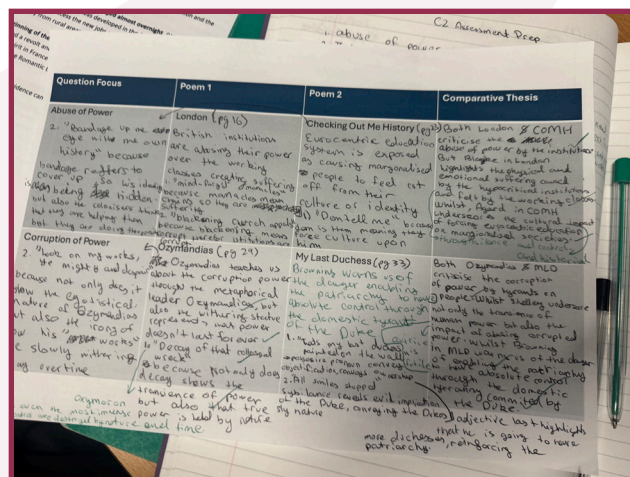 C2 Assessment Prep
abuse of power
Question Focus
Poem 1
Poem 2
Comparative Thesis
Abuse of Power
2. "Bandage up me eye with me own
history" because
bandage refers to
cover up. So his identity
is being hidden
but also the coloniser thinks
that they are helping them
but they are doing the opposite
London (pg 16)
British institutions
are abusing their power
over the working
classes creating suffering
1. "mind-forg'd manacles"
because manacles mean
chains so they are
suffering
2. "blackening church appalls"
because blackening means
corrupt institutions are
corrupt
Checking Out Me History (pg 23)
Eurocentric education
system is exposed
as causing marginalised
people to feel cut
off from their
culture or identity
(1) Dem tell me" because
dem is them meaning they
force culture upon
him
Both London & COMH
criticise the
abuse of power by the institutions
But Blake in London
highlights the physical and
emotional suffering caused
by the hypocritical institutions
and felt by the working classes
whilst Agard in COMH
underscores the cultural impact
of forcing eurocentric education
on marginalised societies
Corruption of Power
2. "Look on my works,
ye mighty and despair
because not only does it
show the egotistical
nature of Ozymandias
but also the irony of
how his "works"
are slowly withering
away overtime
Ozymandias (pg 29)
Ozymandias teaches us
about the corruption power
through the metaphorical
leader Ozymandias, but
also the withering statue
represents, was power
doesn't last forever
1. "Decay of that collosal
wreck"
because not only does
decay shows the
transience of power
but also that true
power is held by nature
My Last Duchess (pg 33)
Browning warns us of
the danger enabling
the patriarchy to have
absolute control through
the domestic tyranny
of the Duke
1. "Thats my last duchess
painted on the wall"
possessive pronoun convey
objectification, conveys ownership
2. All smiles stopped
sybilance reveals evil implication
sly nature
of the Duke, conveying the Dukes
adjective last highlights
that he is going to have
more duchesses, reinforcing the
patriarchy.
Both Ozymandias & MLD
critisise the corruption
of power by tyrants on
people. Whilst Shelley underscore
not only the transience of
human power but also the
impact of abusing corrupted
power. Whilst Browning
in MLD warns us of the danger
of enabling the patriarchy
to have absolute control
through the domestic
tyranny commited by
the Duke.
Oxymoron
even the most immense
are destroyed by nature over time